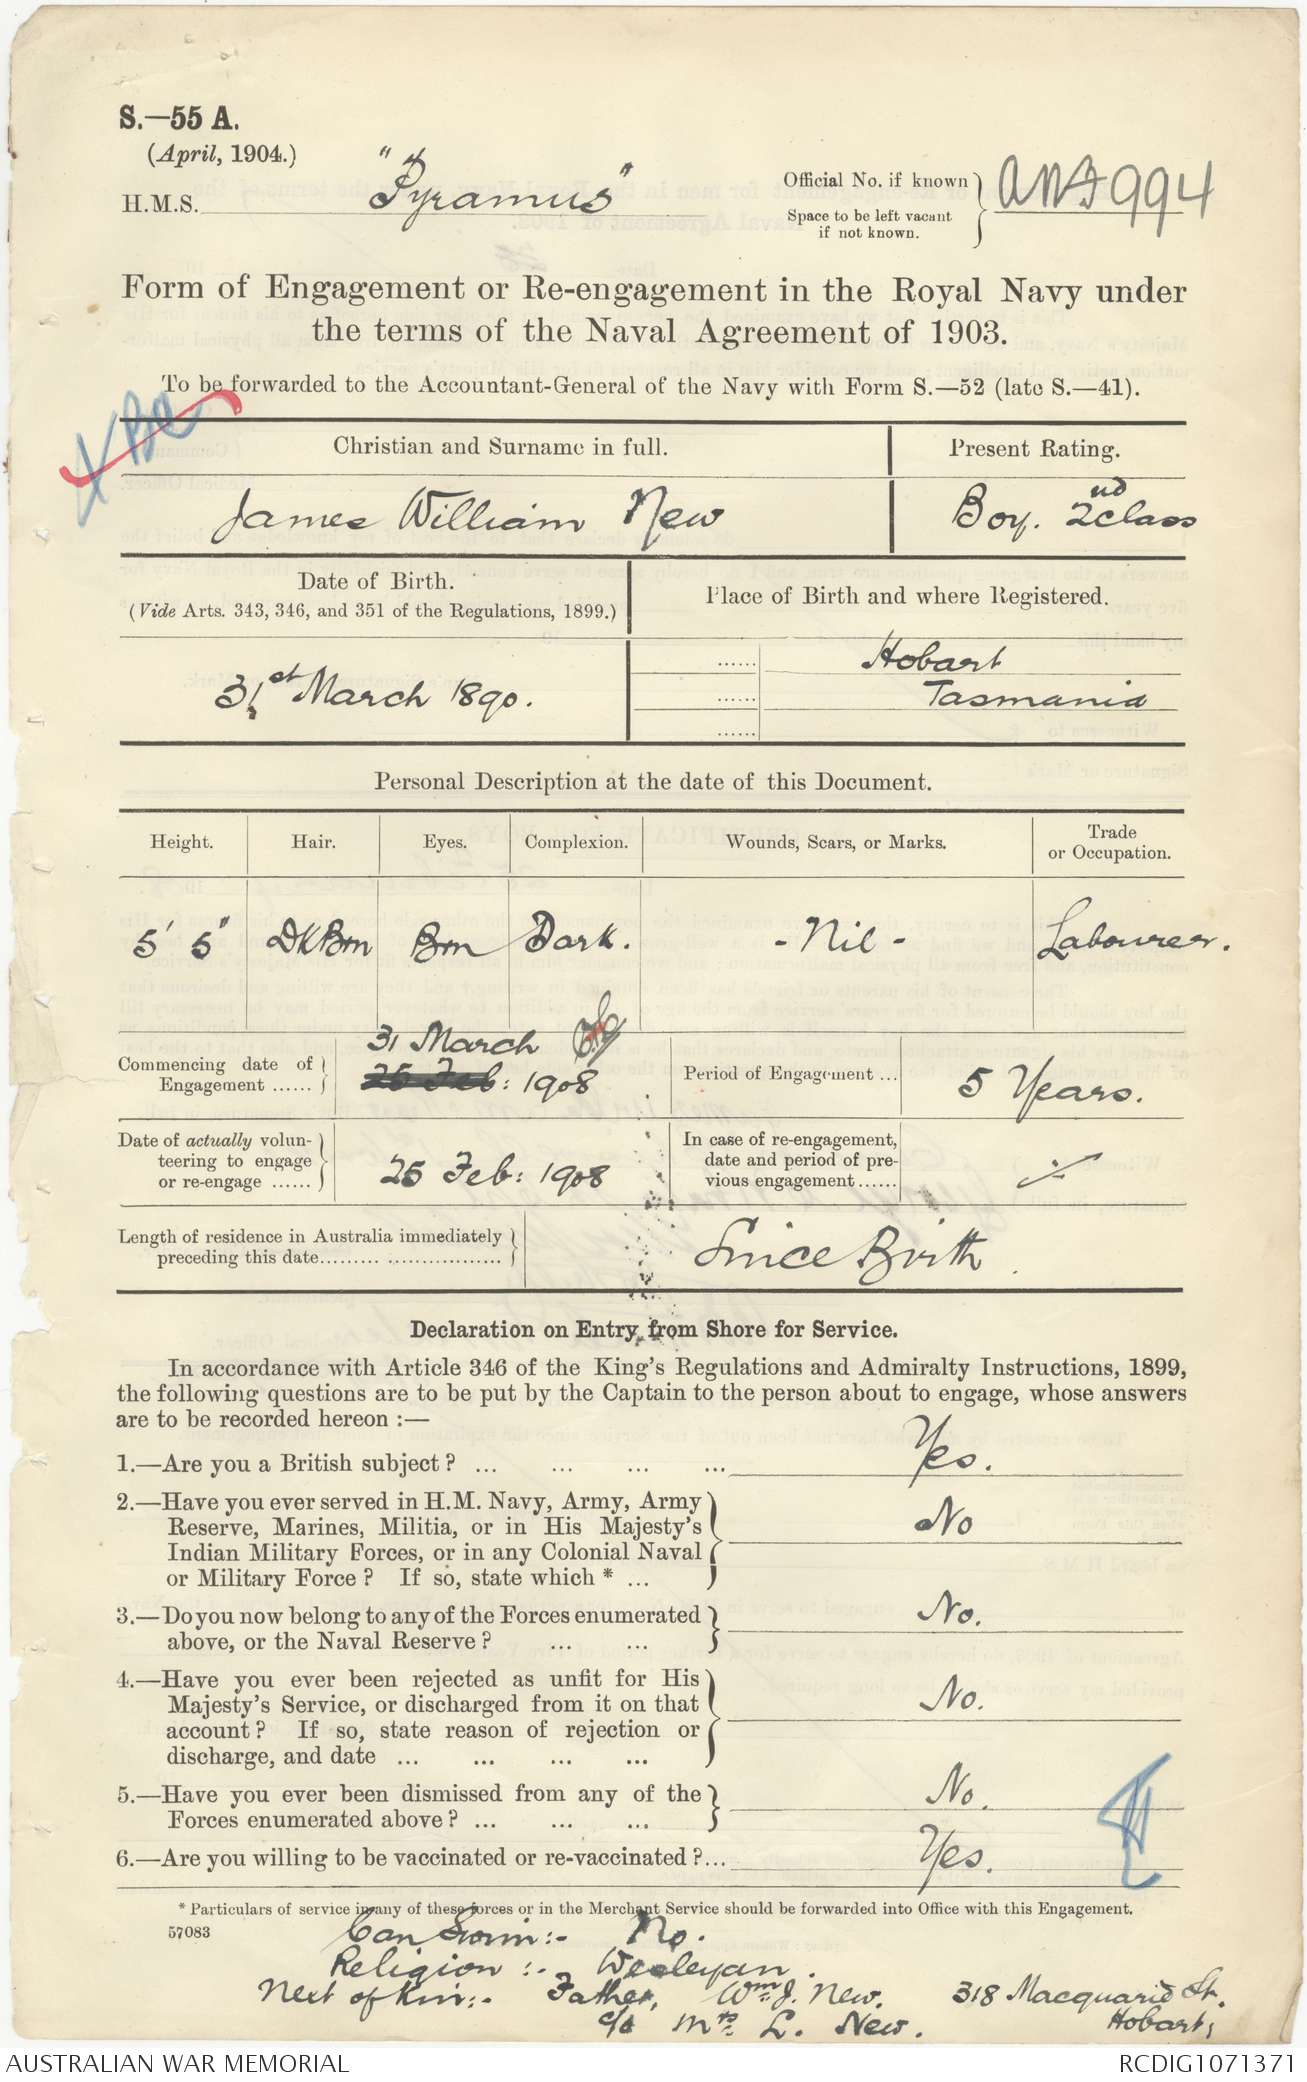 S.—55 A.
(April, 1904.)
H.M.S. "Pyramus"
Official No. if known
Space to be left vacant
if not known.
ANF 994
Form of Engagement or Re-engagement in the Royal Navy under
the terms of the Naval Agreement of 1903.
To be forwarded to the Accountant-General of the Navy with Form S.—52 (late S.—41).
Christian and Surname in full.
Present Rating.
James William New
Boy. 2nd class
Date of Birth.
(Vide Arts. 343, 346, and 351 of the Regulations, 1899.)
Place of Birth and where Registered.
31st March 1890.
...... Hobart
...... Tasmania
......
Personal Description at the date of this Document.
Height. Hair. Eyes. Complexion. Wounds, Scars, or Marks. Trade
or Occupation.
5' 5" Dk Brn Brn Dark. - Nil - Labourer.
Commencing date of
Engagement ......
31 March
25 Feb: 1908
Period of Engagement ... 5 Years.
Date of actually volun-
teering to engage
or re-engage ......
25 Feb: 1908
In case of re-engagement,
date and period of pre-
vious engagement......
Length of residence in Australia immediately
preceding this date......... .................
Since Birth
Declaration on Entry from Shore for Service.
In accordance with Article 346 of the King's Regulations and Admiralty Instructions, 1899,
the following questions are to be put by the Captain to the person about to engage, whose answers
are to be recorded hereon :—
1.—Are you a British subject ? ... ... ... ... Yes.
2.—Have you ever served in H.M. Navy, Army, Army
Reserve, Marines, Militia, or in His Majesty's
Indian Military Forces, or in any Colonial Naval
or Military Force ? If so, state which * ...
No
3.—Do you now belong to any of the Forces enumerated
above, or the Naval Reserve ? ... ...
No.
4.—Have you ever been rejected as unfit for His
Majesty's Service, or discharged from it on that
account ? If so, state reason of rejection or
discharge, and date ... ... ... ...
No.
5.—Have you ever been dismissed from any of the
Forces enumerated above ? ... ... ...
No.
6.—Are you willing to be vaccinated or re-vaccinated ?... Yes.
* Particulars of service in any of these forces or in the Merchant Service should be forwarded into Office with this Engagement.
57083
Can Swim:- No.
Religion :- Wesleyan.
Next of Kin:- Father, Wm J. New. 318 Macquarie St.
c/o Mrs L. New. Hobart,
AUSTRALIAN WAR MEMORIAL
RCDIG1071371